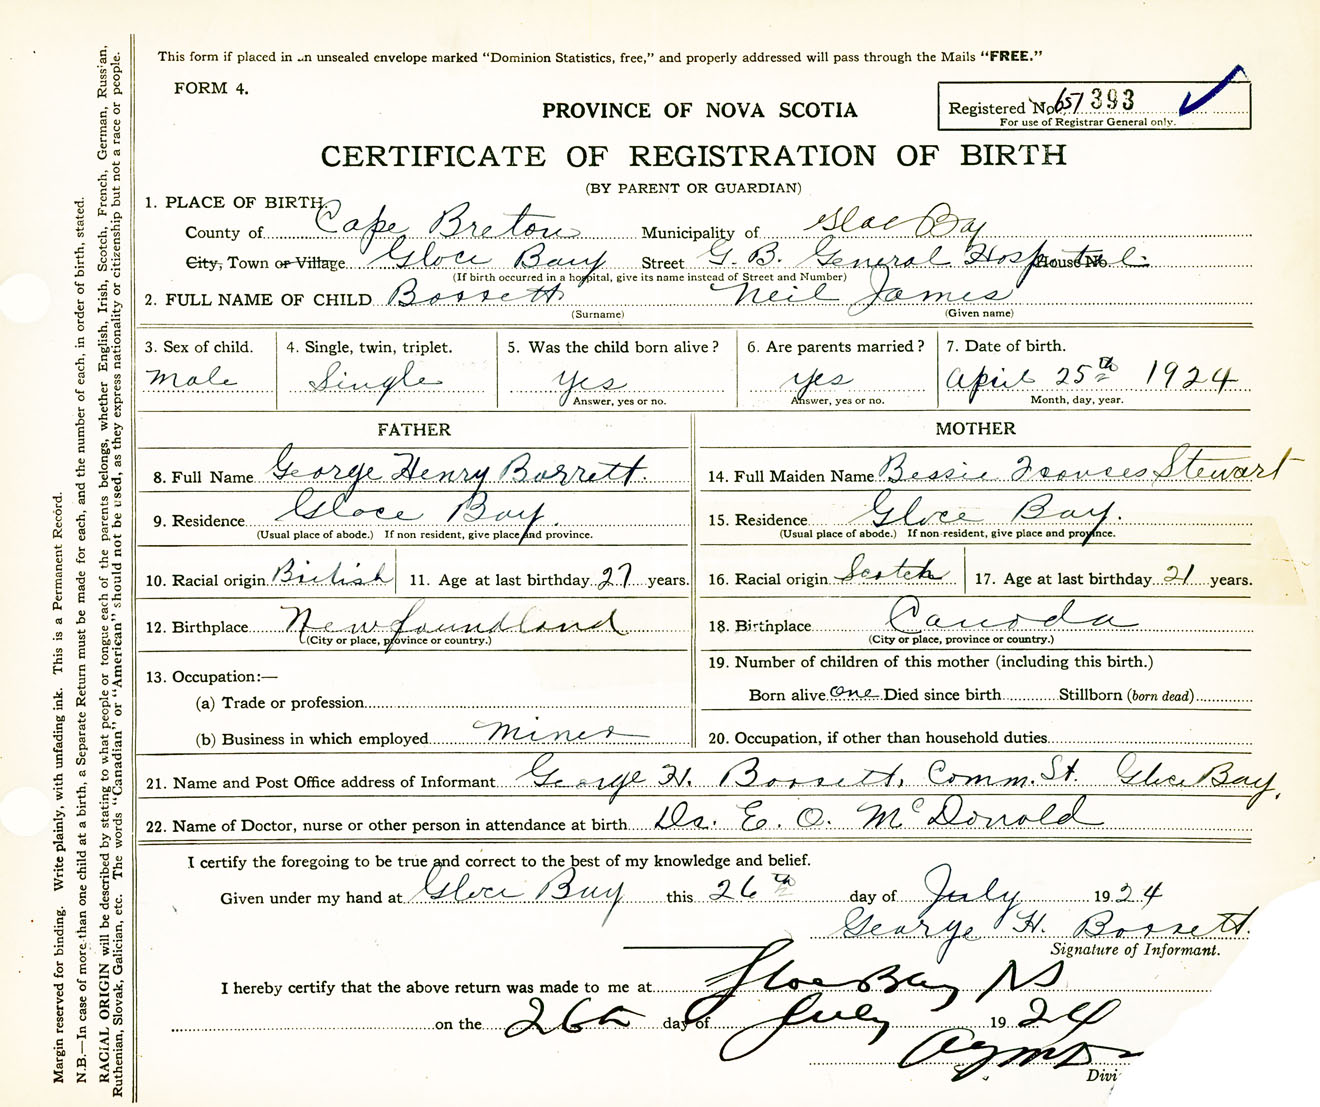 This form if placed in an unsealed envelope marked "Dominion Statistics, free," and properly addressed will pass through the Mails "FREE."
FORM 4.
PROVINCE OF NOVA SCOTIA
Registered No. 657393
For use of Registrar General only.
CERTIFICATE OF REGISTRATION OF BIRTH
(BY PARENT OR GUARDIAN)
1. PLACE OF BIRTH
County of Cape Breton Municipality of Glace Bay
City, Town or Village Glace Bay Street G. B. General Hospital House No.
(If birth occurred in a hospital, give its name instead of Street and Number)
2. FULL NAME OF CHILD Barrett Neil James
(Surname) (Given name)
3. Sex of child. 4. Single, twin, triplet. 5. Was the child born alive? 6. Are parents married? 7. Date of birth.
Male Single Yes Yes April 25th 1924
Answer, yes or no. Answer, yes or no. Month, day, year.
FATHER MOTHER
8. Full Name George Henry Barrett. 14. Full Maiden Name Bessie Frances Stewart
9. Residence Glace Bay. 15. Residence Glace Bay.
(Usual place of abode.) If non resident, give place and province. (Usual place of abode.) If non-resident, give place and province.
10. Racial origin British 11. Age at last birthday 27 years. 16. Racial origin Scotch 17. Age at last birthday 21 years.
12. Birthplace Newfoundland 18. Birthplace Canada
(City or place, province or country.) (City or place, province or country.)
13. Occupation:— 19. Number of children of this mother (including this birth.)
(a) Trade or profession Born alive one Died since birth Stillborn (born dead)
(b) Business in which employed Miner 20. Occupation, if other than household duties
21. Name and Post Office address of Informant George H. Barrett, Comm. St. Glace Bay.
22. Name of Doctor, nurse or other person in attendance at birth Dr. E. O. McDonald
I certify the foregoing to be true and correct to the best of my knowledge and belief.
Given under my hand at Glace Bay this 26th day of July 1924
George H. Barrett.
Signature of Informant.
I hereby certify that the above return was made to me at Glace Bay NS
on the 26th day of July 1924
Divi
Margin reserved for binding. Write plainly, with unfading ink. This is a Permanent Record.
N.B.—In case of more than one child at a birth, a Separate Return must be made for each, and the number of each, in order of birth, stated.
RACIAL ORIGIN will be described by stating to what people or tongue each of the parents belongs, whether English, Irish, Scotch, French, German, Russian,
Ruthenian, Slovak, Galician, etc. The words "Canadian" or "American" should not be used, as they express nationality or citizenship but not a race or people.